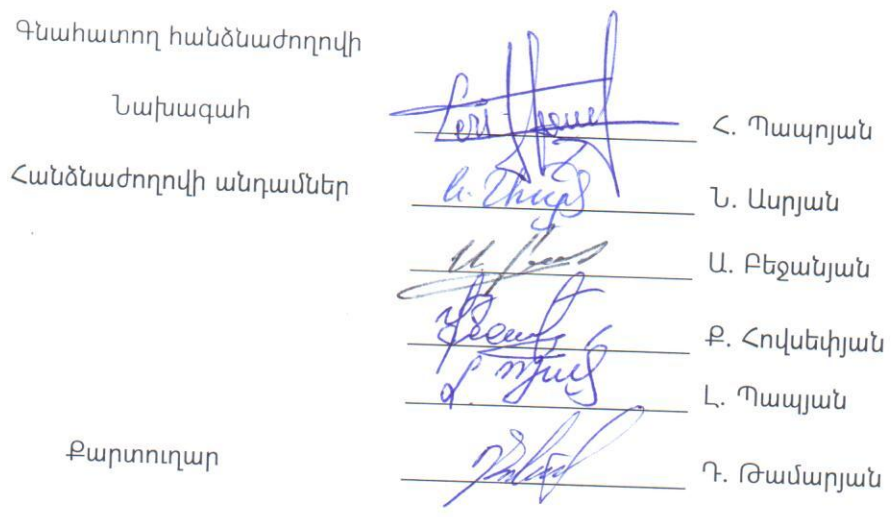 Գնահատող հանձնաժողովի
Նախագահ
Հ. Պապոյան
Հանձնաժողովի անդամներ
Ն. Ասրյան
Ա. Բեջանյան
Ք. Հովսեփյան
Լ. Պապյան
Քարտուղար
Դ. Թամարյան